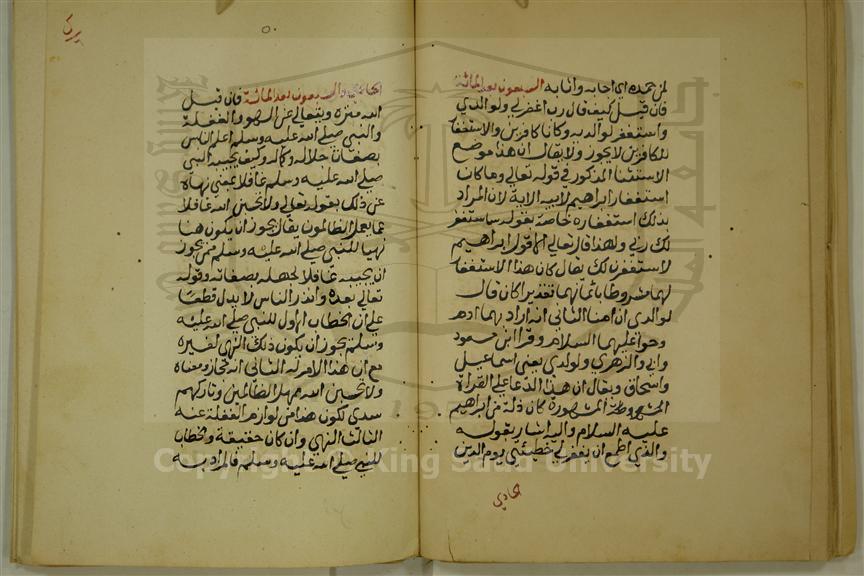 لمن حمده اي اجابه واثابه السبعون بعد المائة
فان قيل كيف قال رب اغفر لي ولوالدي
واستغفر لوالديه وكانا كافرين والاستغفار
للكافرين لا يجوز ولا يقال ان هذا موضع
الاستثنا المذكور في قوله تعالي وما كان
استغفار ابراهيم لابيه الاية لان المراد
بذلك استغفاره خاصة بقوله ساستغفر
لك ربي ولهذا قال تعالي الا قول ابراهيم
لاستغفرن لك يقال كان هذا الاستغفار
لهما مشروطا بايمانهما تقديرا كان قال
لوالدي ان امنا الثاني انه اراد بهما ادم
وحوا عليهما السلام وقرا ابن مسعود
وابي والزهري ولولدي يعني اسماعيل
واسحاق ويقال ان هذا الدعا علي القراة
المشهورة كان زلة من ابراهيم
عليه السلام واليه اشار بقوله
والذي اطمع ان يغفر لي خطيئتي يوم الدين
الحادي
الحادي والسبعون بعد المائة فان قيل
الله منزه ويتعالي عن السهو والغفلة
والنبي صلي الله عليه وسلم اعلم الناس
بصفات جلاله وكماله وكيف يحسبه النبي
صلي الله عليه وسلم غافلا يعني نهاه
عن ذلك بقوله تعالي ولا تحسبن الله غافلا
عما يعمل الظالمون يقال يجوز ان يكون هذا
نهيا للنبي صلي الله عليه وسلم ممن يجوز
ان يحسبه غافلا لجهله بصفاته وقوله
تعالي بعده وانذر الناس لا يدل قطعا
علي ان الخطاب الاول للنبي صلي الله عليه
وسلم يجوز ان يكون ذلك النهي لغيره
مع ان هذا الامر له الثاني انه مجاز ومعناه
ولا تحسبن الله مهملا الظالمين وتاركهم
سدي لكون هذا من لوازم الغفلة عنه
الثالث النهي وان كان حقيقة والخطاب
للنبي صلي الله عليه وسلم فالمراد به
Copyright © King Saud University